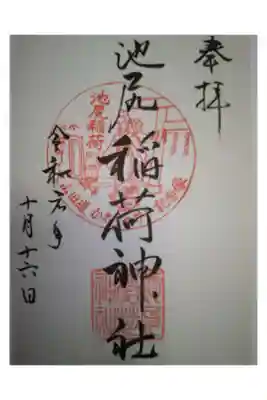 奉拝
池尻稲荷神社
令和元年
十月十六日
池尻稲荷